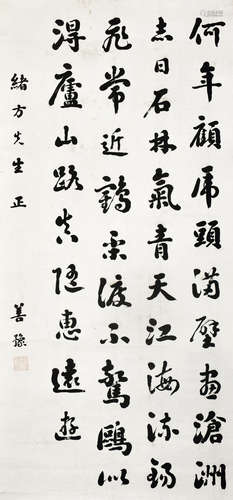 何年顧虎頭滿壁畫滄洲
赤日石林氣青天江海流錫
飛常近鶴杯渡不驚鷗似
得廬山路真隨惠遠遊
緒方先生正
善豫